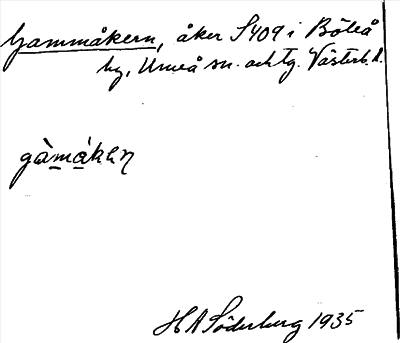 Gammåkern, åker S409 i Böleå
by, Umeå sn. och tg. Västerb. l.
gàmákən
H A Söderberg 1935